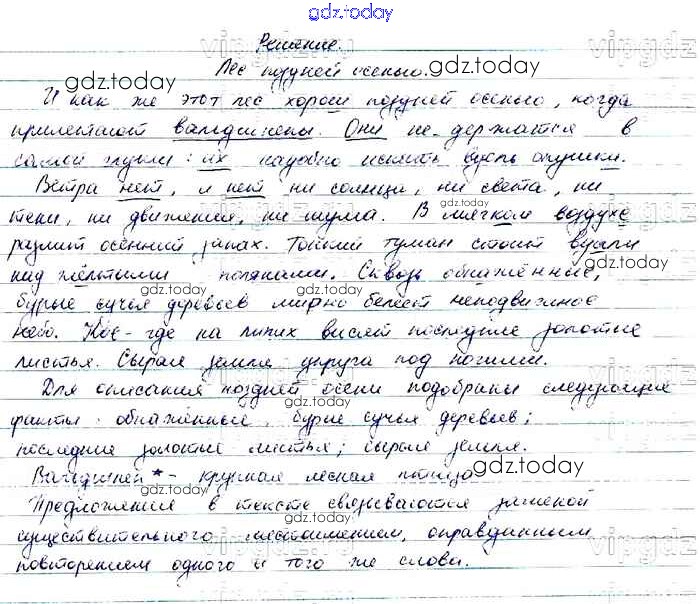 gdz.today
Решение.
Лес поздней осенью.
И как же этот лес хорош поздней осенью, когда
прилетают вальдшнепы. Они не держатся в
самой глуши: их надобно искать вдоль опушки.
Ветра нет, и нет ни солнца, ни света, ни
тени, ни движения, ни шума. В мягком воздухе
разлит осенний запах. Тонкий туман стоит вдали
над жёлтыми полянами. Сквозь обнажённые,
бурые сучья деревьев мирно белеет неподвижное
небо. Кое-где на липах висят последние золотые
листья. Сырая земля упруга под ногами.
Для описания поздней осени подобраны следующие
факты: обнажённые, бурые сучья деревьев;
последние золотые листья; сырая земля.
Вальдшнеп* - крупная лесная птица.
Предложения в тексте связываются заменой
существительного местоимением, оправданным
повторением одного и того же слова.